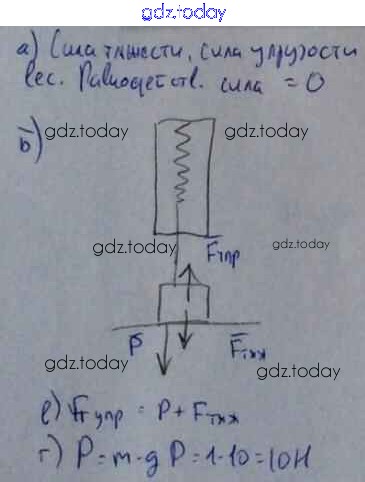 gdz.today
а) Сила тяжести, сила упругости
вес. Равнодейств. сила = 0
gdz.today gdz.today
б)
gdz.today Fупр gdz.today
gdz.today P Fтяж
gdz.today
в) Fупр = P + Fтяж
г) P = m·g P = 1·10 = 10Н
gdz.today